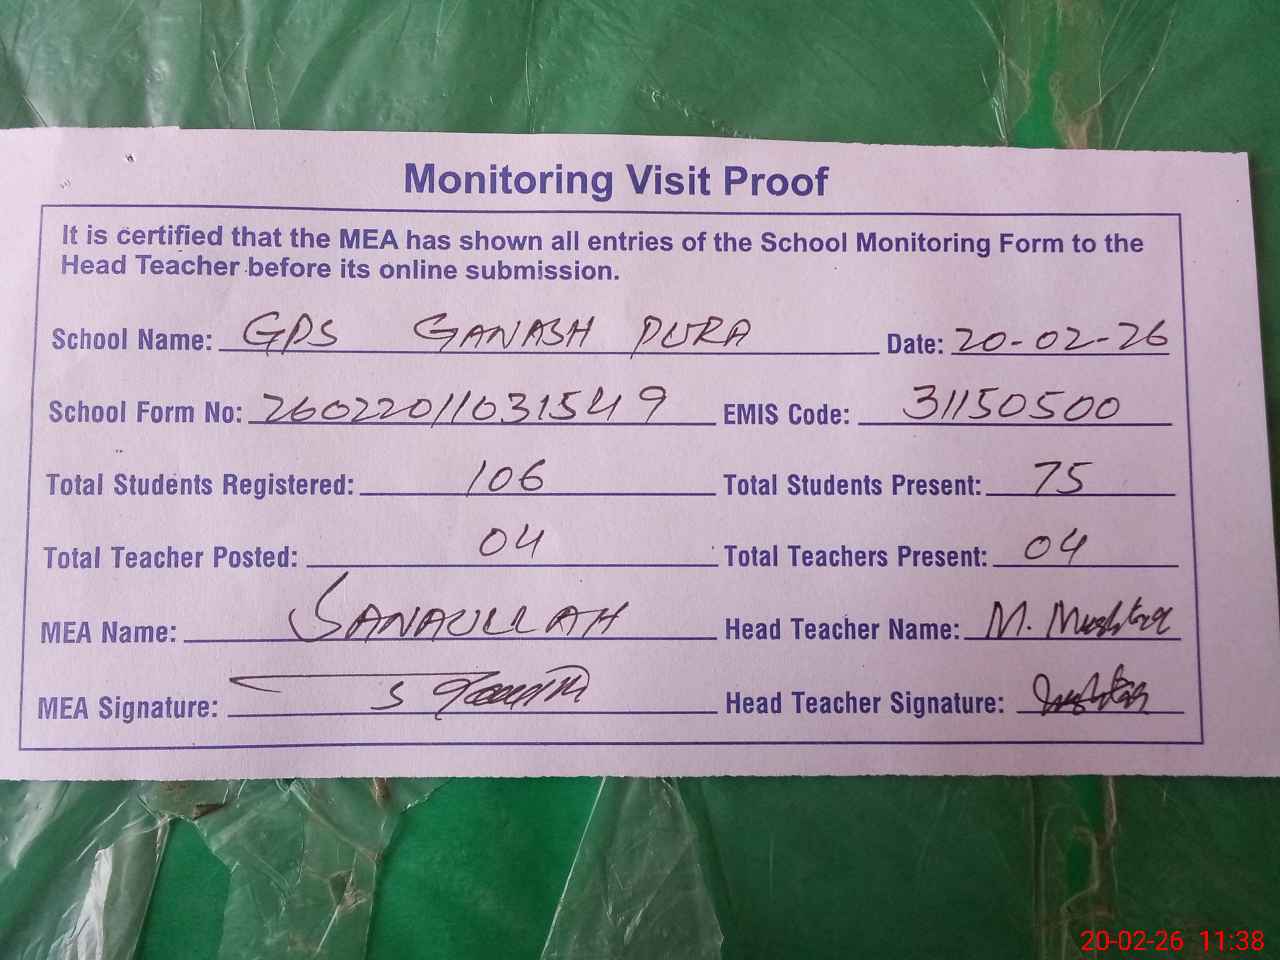 Monitoring Visit Proof
It is certified that the MEA has shown all entries of the School Monitoring Form to the
Head Teacher before its online submission.
School Name: GPS GANASH PURA Date: 20-02-26
School Form No: 26022011031549 EMIS Code: 31150500
Total Students Registered: 106 Total Students Present: 75
Total Teacher Posted: 04 Total Teachers Present: 04
MEA Name: SANAULLAH Head Teacher Name: M.
MEA Signature: Head Teacher Signature:
20-02-26 11:38